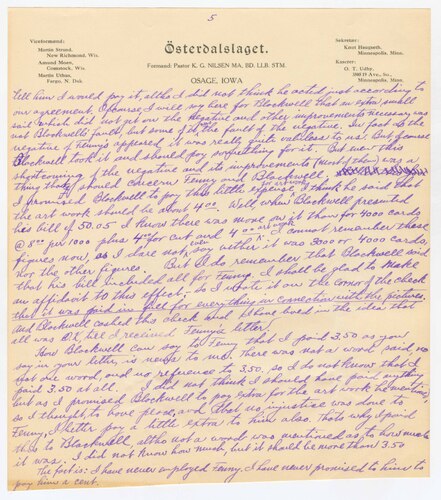 5
Viceformænd:
Martin Strand,
New Richmond, Wis.
Amund Moen,
Comstock, Wis.
Martin Uthus,
Fargo, N. Dak
Österdalslaget.
Formand: Pastor K. G. NILSEN MA, BD, LLB, STM.
OSAGE, IOWA
Sekretær:
Knut Haugseth,
Minneapolis, Minn.
Kasserer:
O. T. Udby,
Minneapolis, Minn.
Tell him I would pay it, altho I did not think he acted just according to
our agreement. Of course I will say here for Blackwell that an extra small
said which did not get on the negative and other improvements necessary was
not Blackwell's fault, but some of it the fault of the negative. In fact as the
negative of Fenny's appeared it was really quite valueless to us. But of course
Blackwell took it and should pay something for it. But now this
shortcoming of the negative and its improvements (most of them) was a
thing that should concern Fenny and Blackwell,
I promised Blackwell to pay this little expense, I think he said that
the art work should be about 4.00. Well when Blackwell presented
his bill of 50.05 I know there was more on it than for 4000 cards
@ 8.00 per 1000 plus 4.00 for cut and 4.00 art work. I cannot remember these
figures now, so I dare not even say wither it was 3000 or 4000 cards,
nor the other figures. But I do remember that Blackwell said
that his bill included all for Fenny. I shall be glad to make
an affidavit to this effect. So I wrote it on the corner of the check
that it was paid in full for everything in connection with the pictures.
and Blackwell cashed this check and I have lived in the idea that
all was O.K. till I received Fenny's letter.
How Blackwell can say to Fenny that I paid 3.50 as you
say in your letter, is news to me. There was not a word said, no
not one word and no reference to 3.50. so I do not know that I
paid 3.50 at all. I did not think I should have paid anything
but as I promised Blackwell to pay extra for the art work he mentions,
so I thought to have peace, and that no injustice was done to
Fenny, I better pay a little extra to him also. thats why I paid
this to Blackwell, altho not a word was mentioned as to how much
it was. I did not know how much, but it should be more than 3.50
The fact is: I have never employed Fenny, I have never promised to him to
pay him a cent.